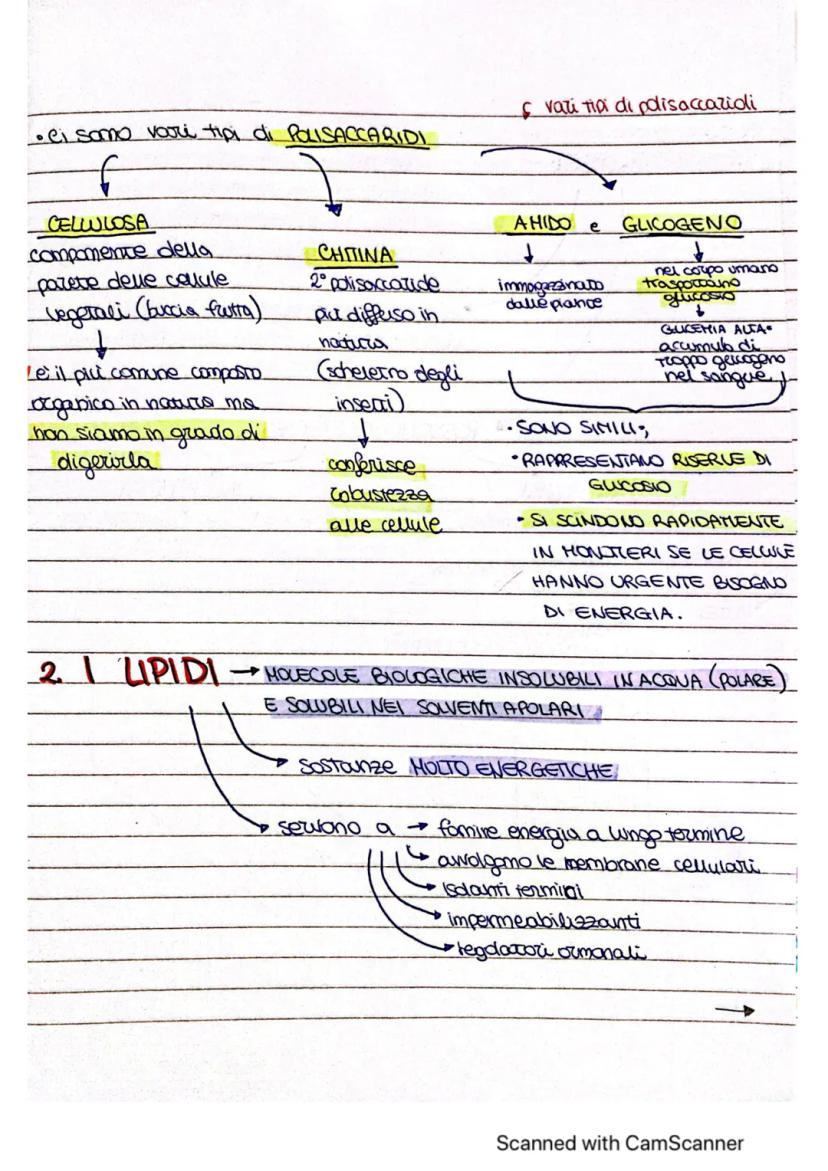 vari tipi di polisaccaridi
• Ci sono vari tipi di POLISACCARIDI
CELLULOSA
componente della
parete delle cellule
vegetali (buccia frutta)
è il più comune composto
organico in natura ma
non siamo in grado di
digerirla
CHITINA
2° polisaccaride
più diffuso in
natura
(scheletro degli
insetti)
conferisce
robustezza
alle cellule
AMIDO e GLICOGENO
immagazzinato
dalle piante
nel corpo umano
trasportano
glucosio
GLICEMIA ALTA=
accumulo di
troppo glicogeno
nel sangue
• SONO SIMILI;
• RAPPRESENTANO RISERVE DI
GLUCOSIO
• SI SCINDONO RAPIDAMENTE
IN MONOMERI SE LE CELLULE
HANNO URGENTE BISOGNO
DI ENERGIA.
2. I LIPIDI → MOLECOLE BIOLOGICHE INSOLUBILI IN ACQUA (POLARE)
E SOLUBILI NEI SOLVENTI APOLARI
sostanze MOLTO ENERGETICHE
servono a → fornire energia a lungo termine
avvolgono le membrane cellulari
isolanti termini
impermeabilizzanti
regolatori ormonali
Scanned with CamScanner